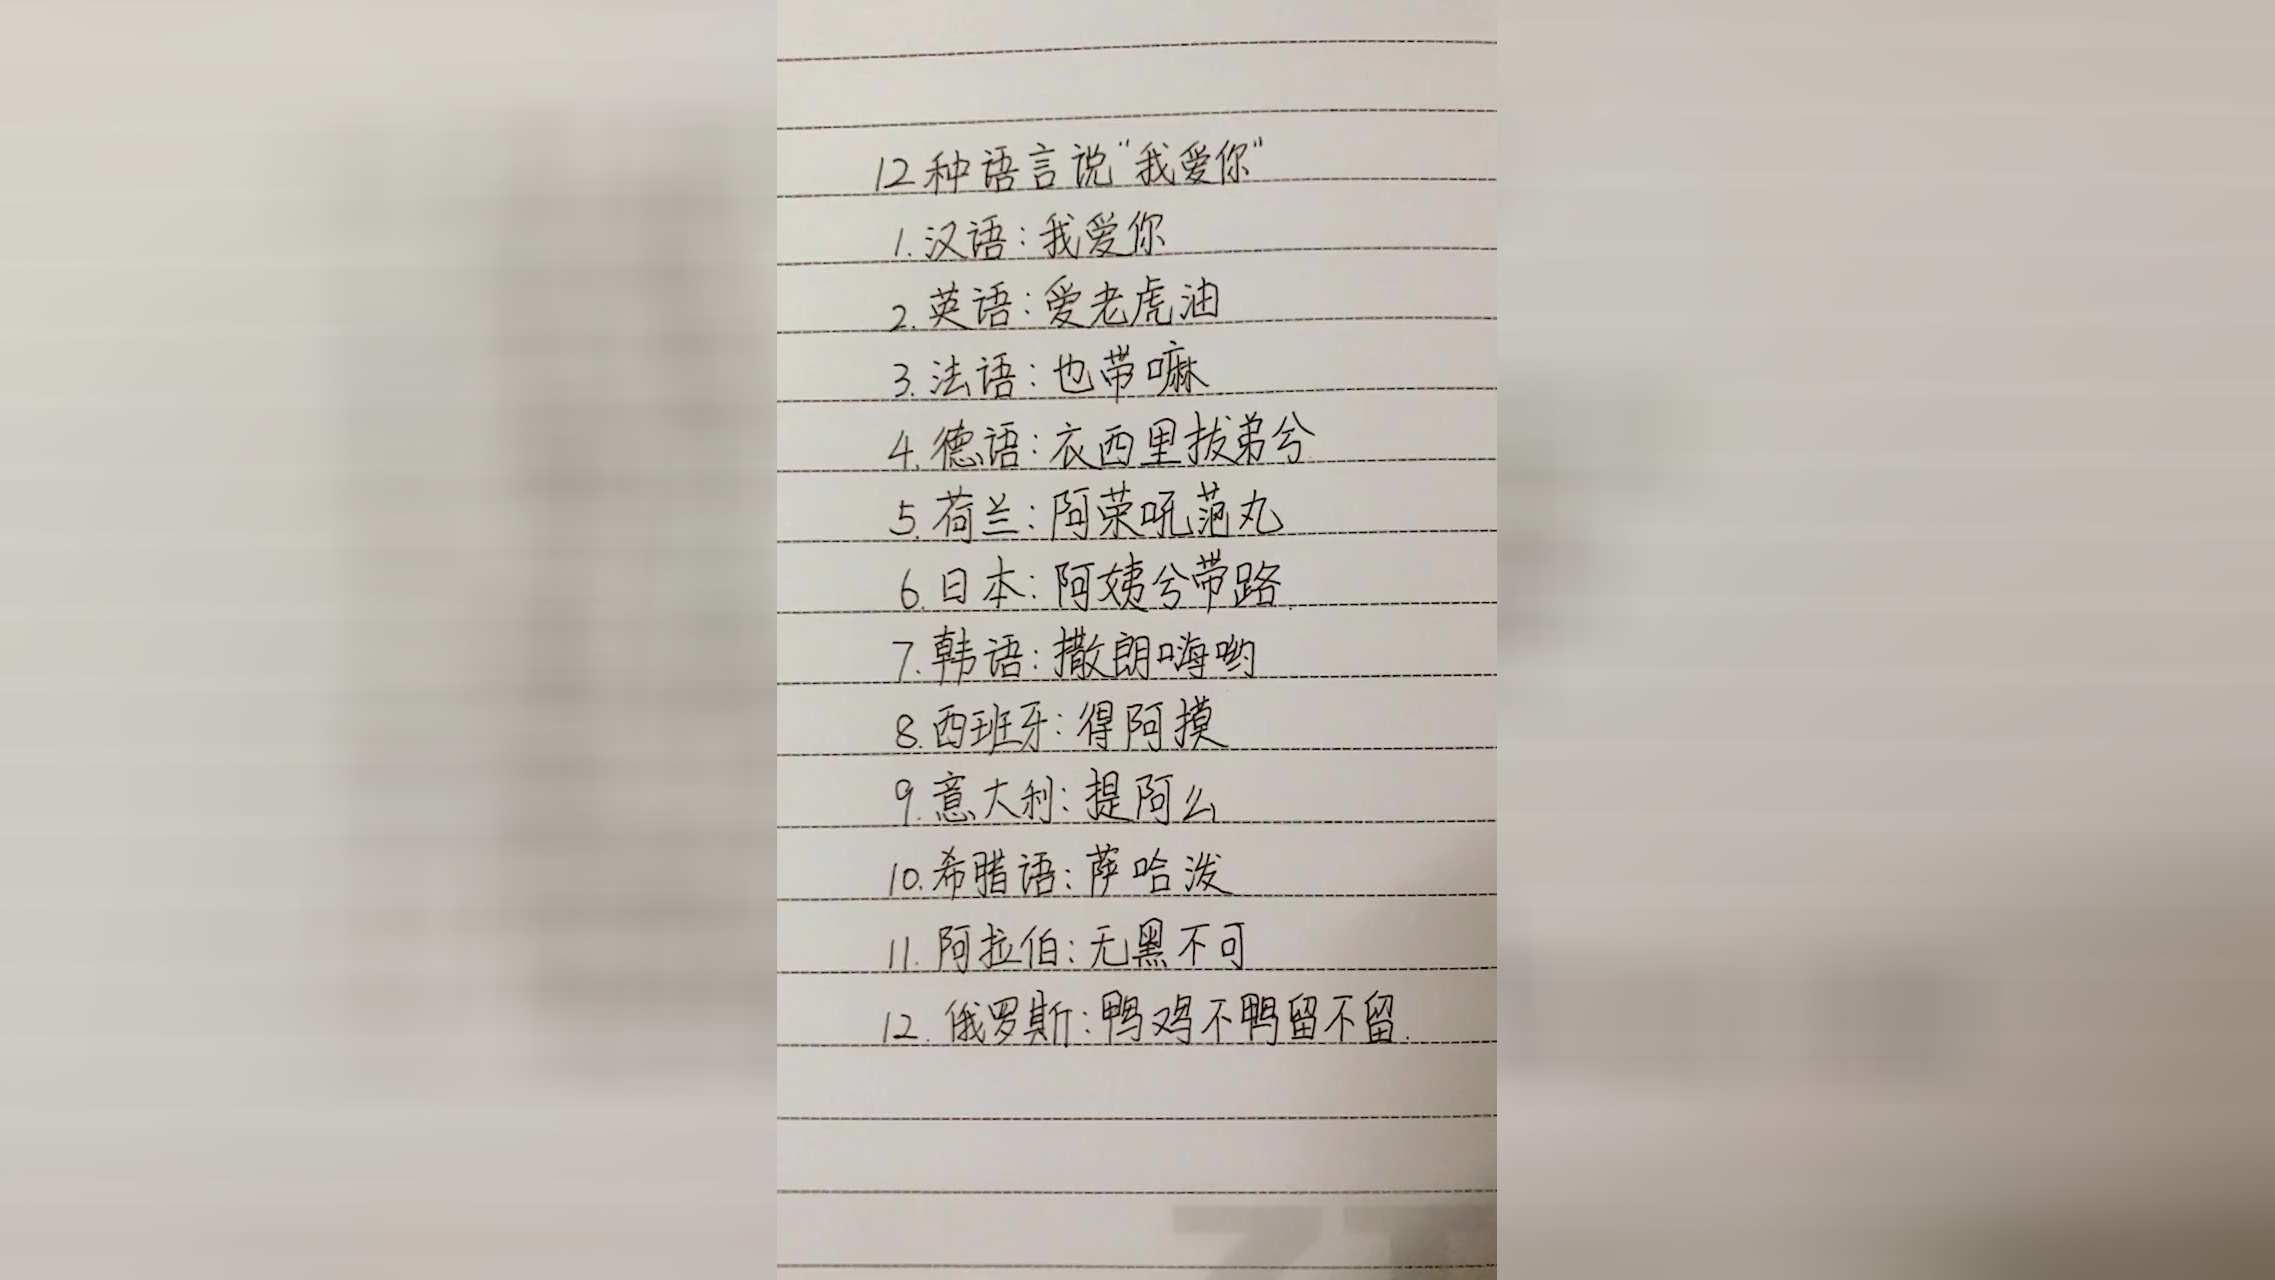 12种语言说"我爱你"
1.汉语:我爱你
2.英语:爱老虎油
3.法语:也带嘛
4.德语:衣西里拔弟兮
5.荷兰:阿荣吼范丸
6.日本:阿姨兮带路.
7.韩语:撒朗嗨哟
8.西班牙:得阿摸
9.意大利:提阿么
10.希腊语:萨哈泼
11.阿拉伯:无黑不可
12.俄罗斯:鸭鸡不鸭留不留.